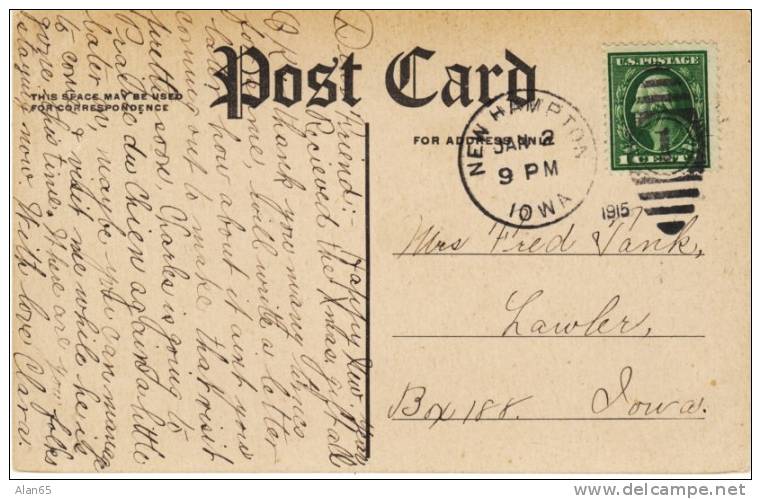 Post Card
THIS SPACE MAY BE USED
FOR CORRESPONDENCE
FOR ADDRESS ONLY
U.S. POSTAGE
1 CENT 1
NEW HAMPTON
JAN 2
9 PM
IOWA
1915
1
Mrs Fred Tank,
Lawler,
Box 188. Iowa.
Dear Friend:- Happy New year
Recieved the Xmas gift all
O.K. Thank you many times
for same, will write a letter
later, how about it aint you
coming out to make that visit
pretty soon, Charles is going to
Praire du Chien again a little
later, maybe you can manage
to come & visit me while he is
gone this time. Where are you folks
staying now. With love Clara.
Alan65
delcampe.net